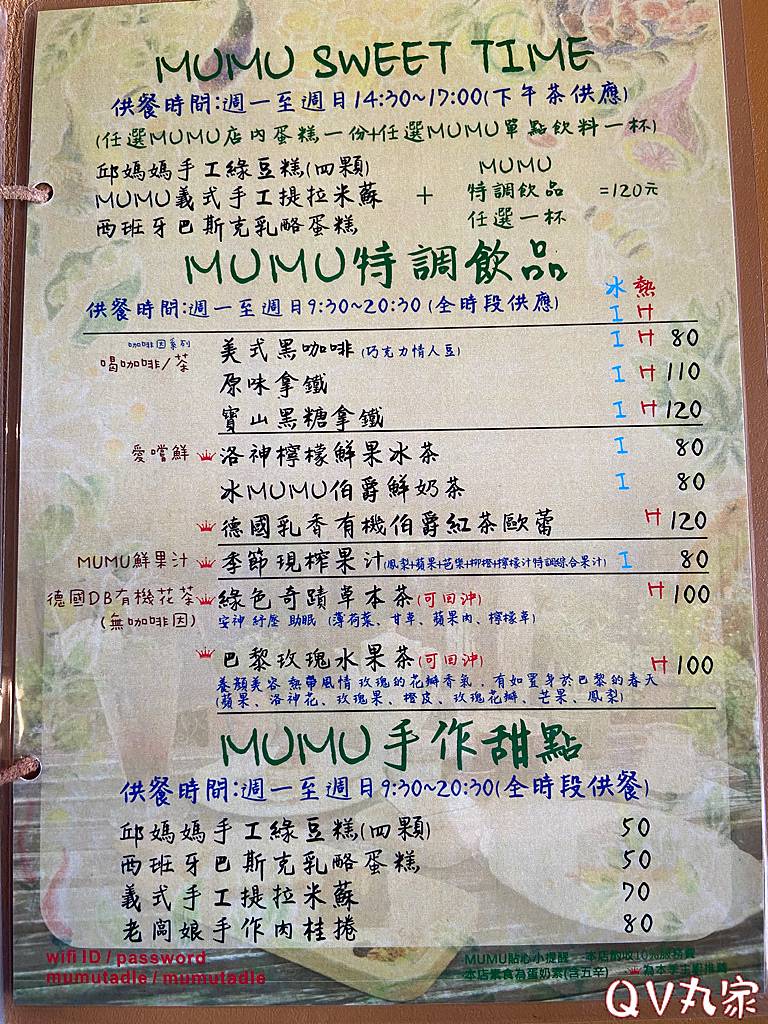 MUMU SWEET TIME
供餐時間:週一至週日14:30~17:00(下午茶供應)
(任選MUMU店內蛋糕一份+任選MUMU單點飲料一杯)
邱媽媽手工綠豆糕(四顆)
MUMU義式手工提拉米蘇
西班牙巴斯克乳酪蛋糕
+
MUMU
特調飲品
任選一杯
=120元
MUMU特調飲品
供餐時間:週一至週日9:30~20:30 (全時段供應)
冰 熱
I H
咖啡因系列
喝咖啡/茶
美式黑咖啡 (巧克力情人豆) I H 80
原味拿鐵 I H 110
寶山黑糖拿鐵 I H 120
愛嚐鮮 洛神檸檬鮮果冰茶 I 80
冰MUMU伯爵鮮奶茶 I 80
德國乳香有機伯爵紅茶歐蕾 H 120
MUMU鮮果汁 季節現榨果汁(鳳梨+蘋果+芭樂+柳橙+檸檬汁特調綜合果汁) I 80
德國DB有機花茶 綠色奇蹟草本茶(可回沖) H 100
(無咖啡因) 安神 紓壓 助眠 (薄荷葉、甘草、蘋果肉、檸檬草)
巴黎玫瑰水果茶(可回沖) H 100
養顏美容 熱帶風情 玫瑰的花瓣香氣，有如置身於巴黎的春天
(蘋果、洛神花、玫瑰果、橙皮、玫瑰花瓣、芒果、鳳梨)
MUMU手作甜點
供餐時間:週一至週日9:30~20:30(全時段供餐)
邱媽媽手工綠豆糕(四顆) 50
西班牙巴斯克乳酪蛋糕 50
義式手工提拉米蘇 70
老闆娘手作肉桂捲 80
wifi ID / password
mumutadle / mumutadle
MUMU貼心小提醒 -本店酌收10%服務費
-本店素食為蛋奶素(含五辛) -為本季主廚推薦
QV丸家